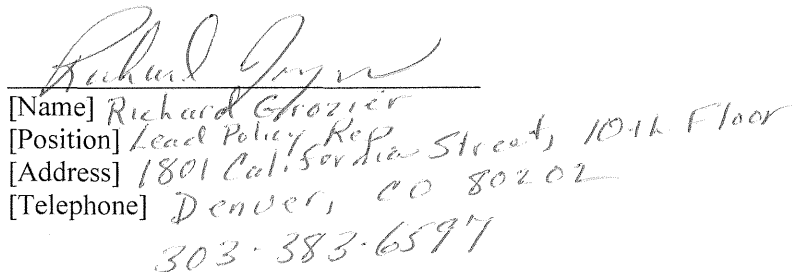 Richard Grozier
[Name] Richard Grozier
[Position] Lead Policy Rep
[Address] 1801 California Street, 10th Floor
[Telephone] Denver, CO 80202
303-383-6597